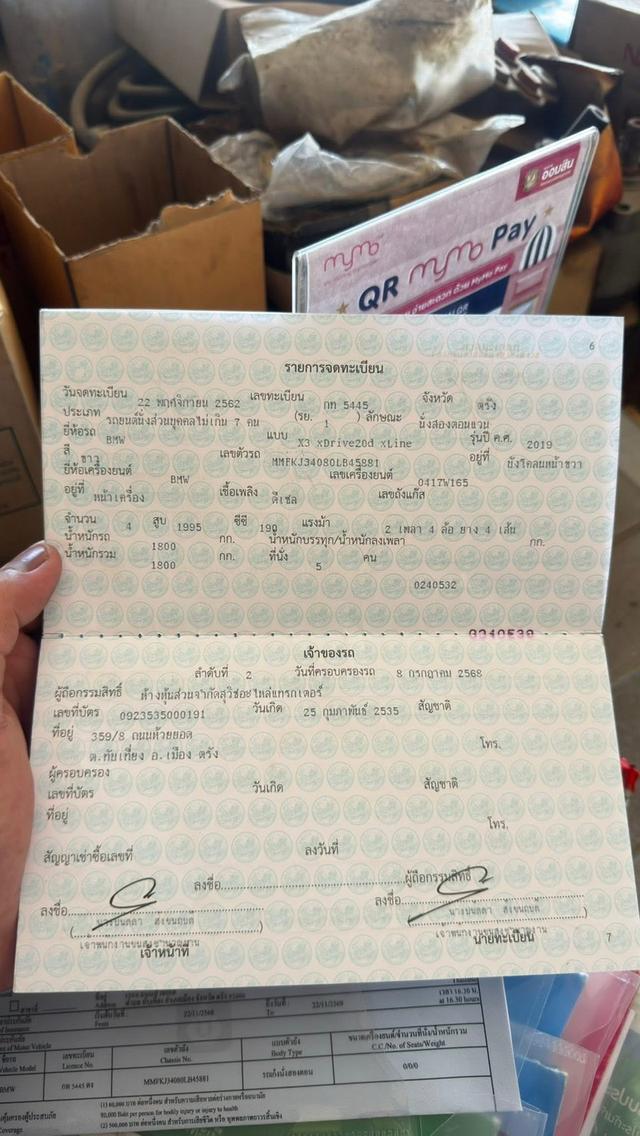 ออมสิน
mymo
QR mymo Pay
6
รายการจดทะเบียน
วันจดทะเบียน 22 พฤศจิกายน 2562 เลขทะเบียน กท 5445 จังหวัด ตรัง
ประเภท รถยนต์นั่งส่วนบุคคลไม่เกิน 7 คน (รย. 1 ) ลักษณะ นั่งสองตอนแวน
ยี่ห้อรถ BMW แบบ X3 xDrive20d xLine รุ่นปี ค.ศ. 2019
สี ขาว เลขตัวรถ MMFKJ34080LB45881 อยู่ที่ บังโคลนหน้าขวา
ยี่ห้อเครื่องยนต์ BMW เลขเครื่องยนต์ 0417W165
อยู่ที่ หน้าเครื่อง เชื้อเพลิง ดีเซล เลขถังแก๊ส
จำนวน 4 สูบ 1995 ซีซี 190 แรงม้า 2 เพลา 4 ล้อ ยาง 4 เส้น
น้ำหนักรถ 1800 กก. น้ำหนักบรรทุก/น้ำหนักลงเพลา กก.
น้ำหนักรวม 1800 กก. ที่นั่ง 5 คน
0240532
เจ้าของรถ
ลำดับที่ 2 วันที่ครอบครองรถ 8 กรกฎาคม 2568
ผู้ถือกรรมสิทธิ์ ห้างหุ้นส่วนจำกัดสุวิชอะไหล่แทรกเตอร์
เลขที่บัตร 0923535000191 วันเกิด 25 กุมภาพันธ์ 2535 สัญชาติ
ที่อยู่ 359/8 ถนนห้วยยอด
ต.ทับเที่ยง อ.เมือง ตรัง โทร.
ผู้ครอบครอง
เลขที่บัตร วันเกิด สัญชาติ
ที่อยู่ โทร.
สัญญาเช่าซื้อเลขที่ ลงวันที่
ลงชื่อ ผู้ถือกรรมสิทธิ์
ลงชื่อ ลงชื่อ
เจ้าหน้าที่ นายทะเบียน
7
22/11/2568 To 22/11/2569 at 16.30 hours
เลขทะเบียน เลขตัวถัง แบบตัวถัง
Vehicle Model Licence No. Chassis No. Body Type C.C./No. of Seats/Weight
BMW กท 5445 ตง MMFKJ34080LB45881 รถเก๋งสองตอน 0/0/0